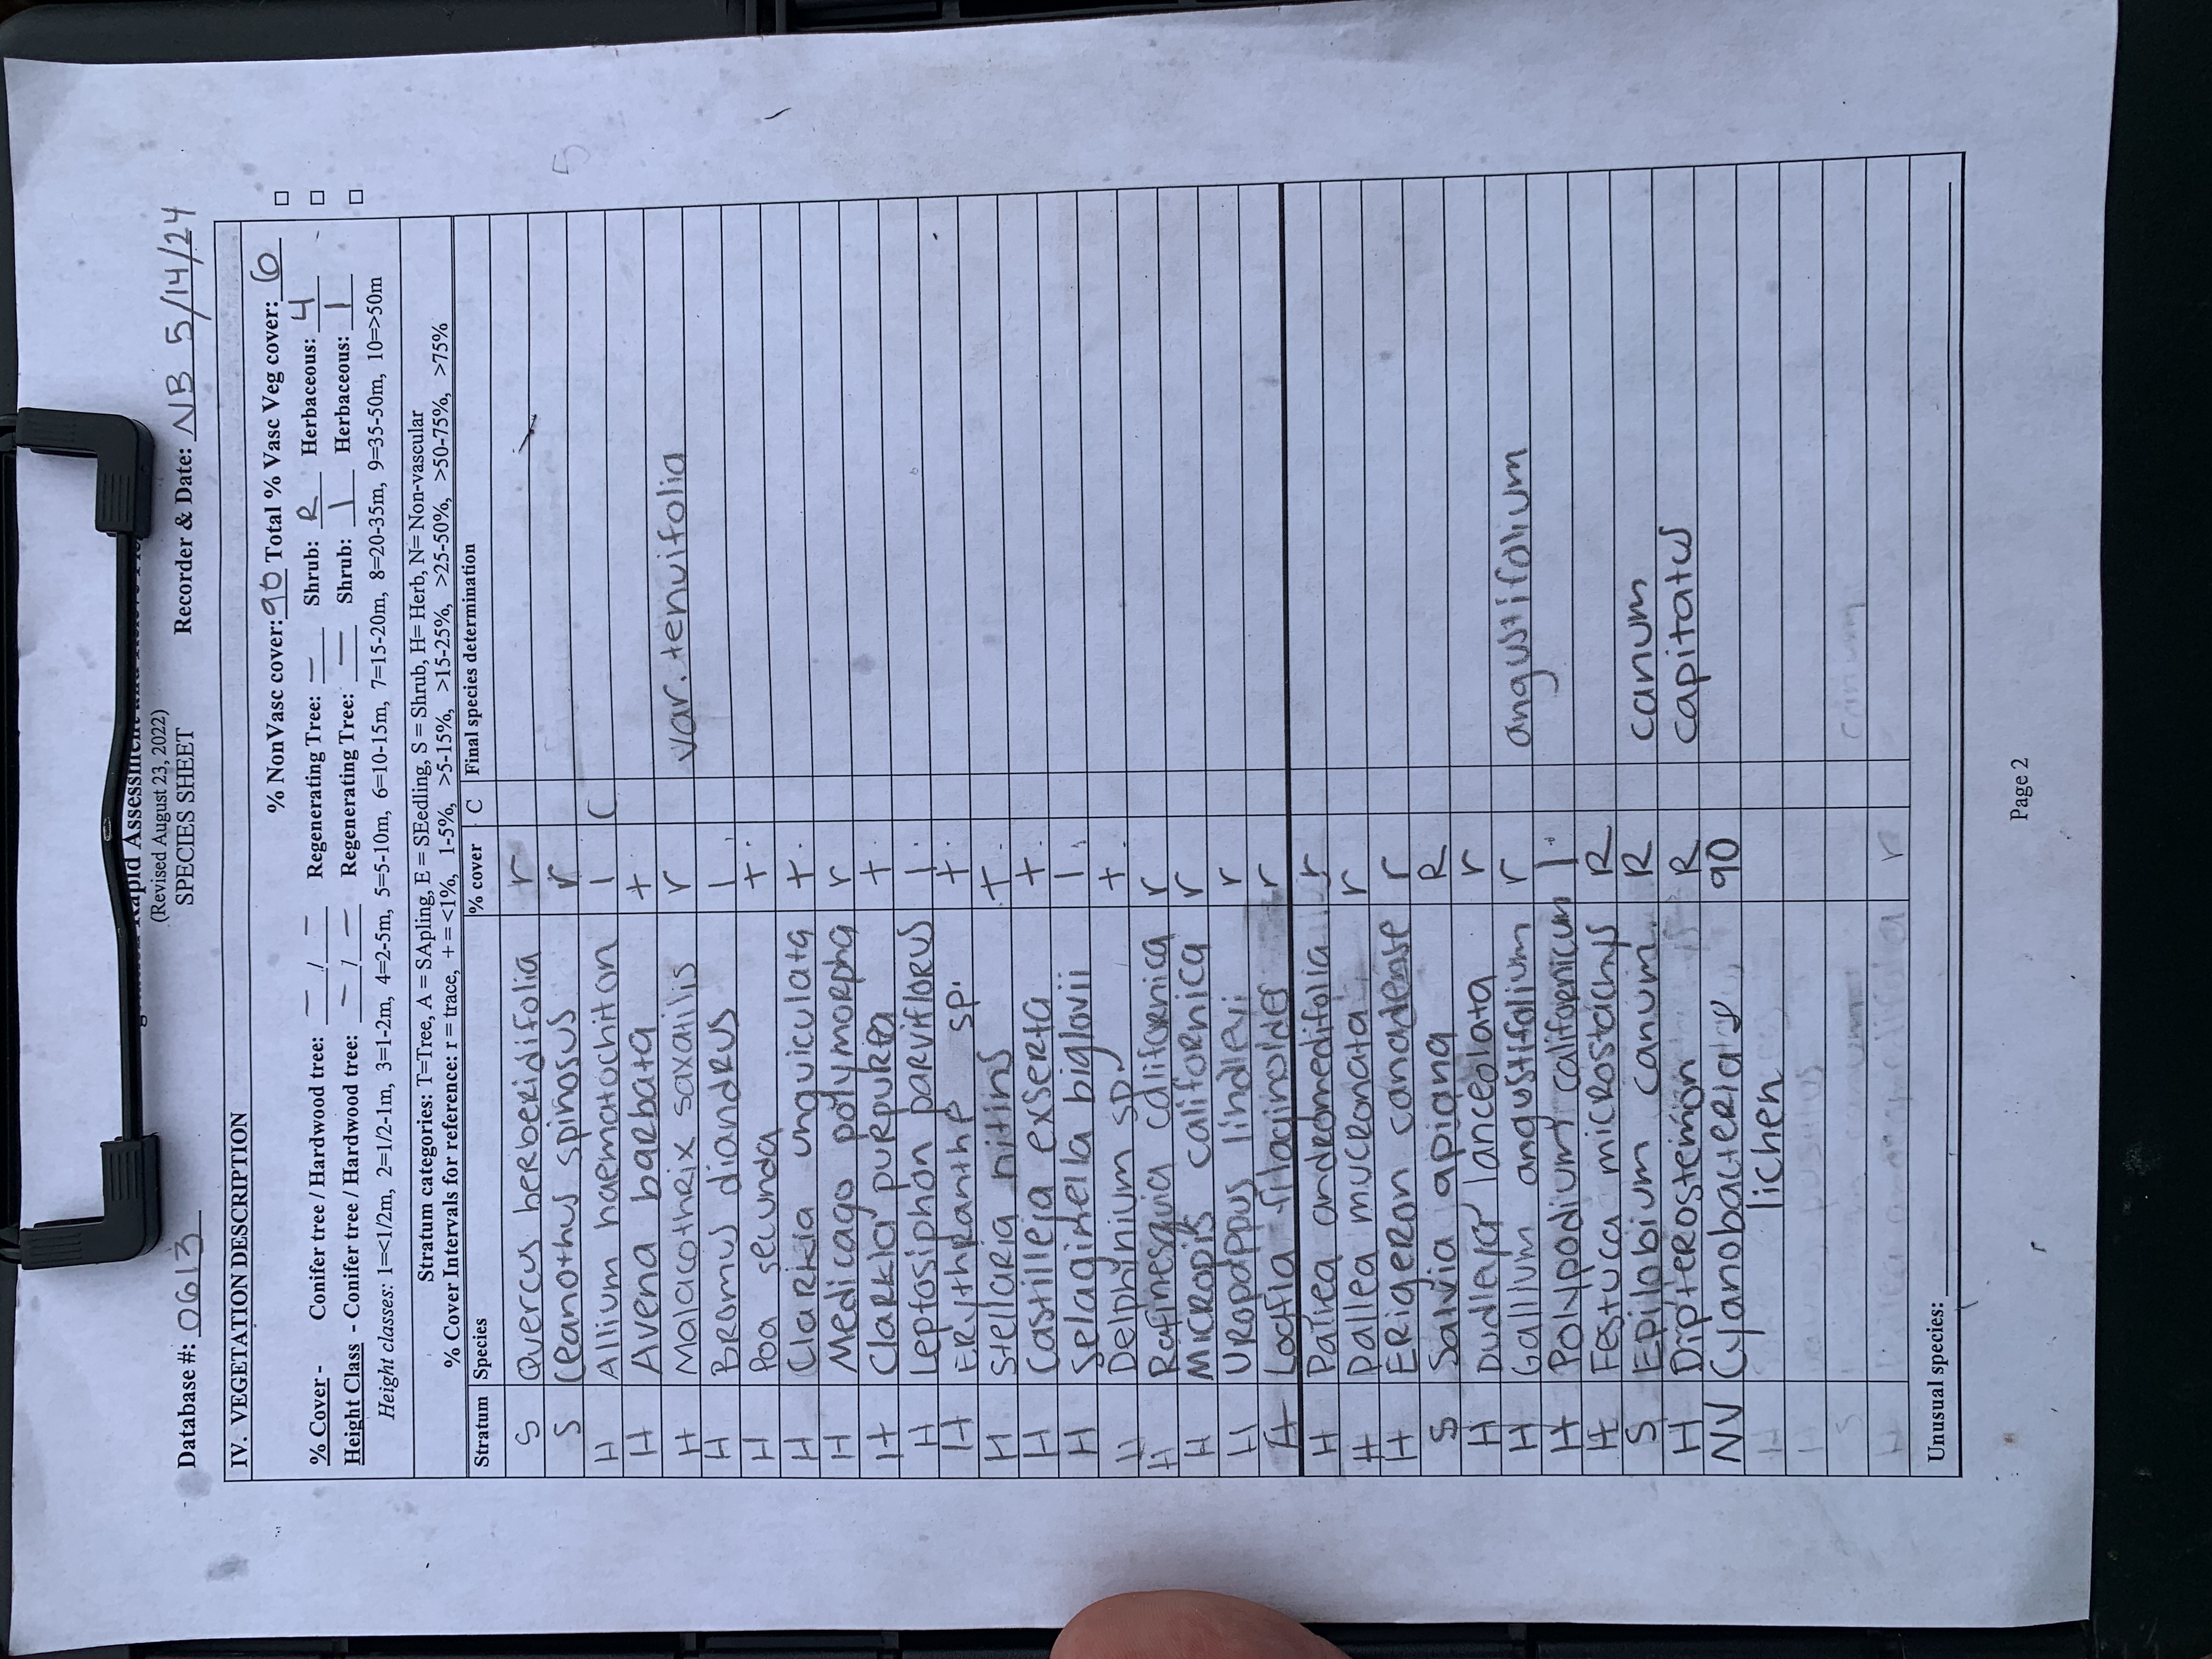 Rapid Assessment
(Revised August 23, 2022)
SPECIES SHEET
Database #: 0613 Recorder & Date: NB 5/14/24
IV. VEGETATION DESCRIPTION
% NonVasc cover: 90 Total % Vasc Veg cover: 6
% Cover - Conifer tree / Hardwood tree: — / — Regenerating Tree: — Shrub: R Herbaceous: 4
Height Class - Conifer tree / Hardwood tree: — / — Regenerating Tree: — Shrub: 1 Herbaceous: 1
Height classes: 1=<1/2m, 2=1/2-1m, 3=1-2m, 4=2-5m, 5=5-10m, 6=10-15m, 7=15-20m, 8=20-35m, 9=35-50m, 10=>50m
Stratum categories: T=Tree, A = SApling, E = SEedling, S = Shrub, H= Herb, N= Non-vascular
% Cover Intervals for reference: r = trace, + = <1%, 1-5%, >5-15%, >15-25%, >25-50%, >50-75%, >75%
Stratum Species % cover C Final species determination
S Quercus berberidifolia r
S Ceanothus spinosus r
H Allium haematochiton 1 C
H Avena barbata +
H Malacothrix saxatilis r var. tenuifolia
H Bromus diandrus 1
H Poa secunda +
H Clarkia unguiculata +
H Medicago polymorpha r
H Clarkia purpurea +
H Leptosiphon parviflorus 1
H Erythranthe sp. +
H Stellaria nitins +
H Castilleja exserta +
H Selaginella biglovii 1
H Delphinium sp. +
H Rafinesquia californica r
H Micropus californica r
H Uropappus lindleyi r
H Logfia filaginoides r
H Pallea andromedifolia r
H Pallea mucronata r
H Erigeron canadense r
S Salvia apiana R
H Dudleya lanceolata r
H Gallium angustifolium r angustifolium
H Polypodium californicum 1
H Festuca microstachys R
S Epilobium canum R canum
H Dipterostemon R capitatus
NV Cyanobacteria & 90
lichen
Unusual species:
Page 2